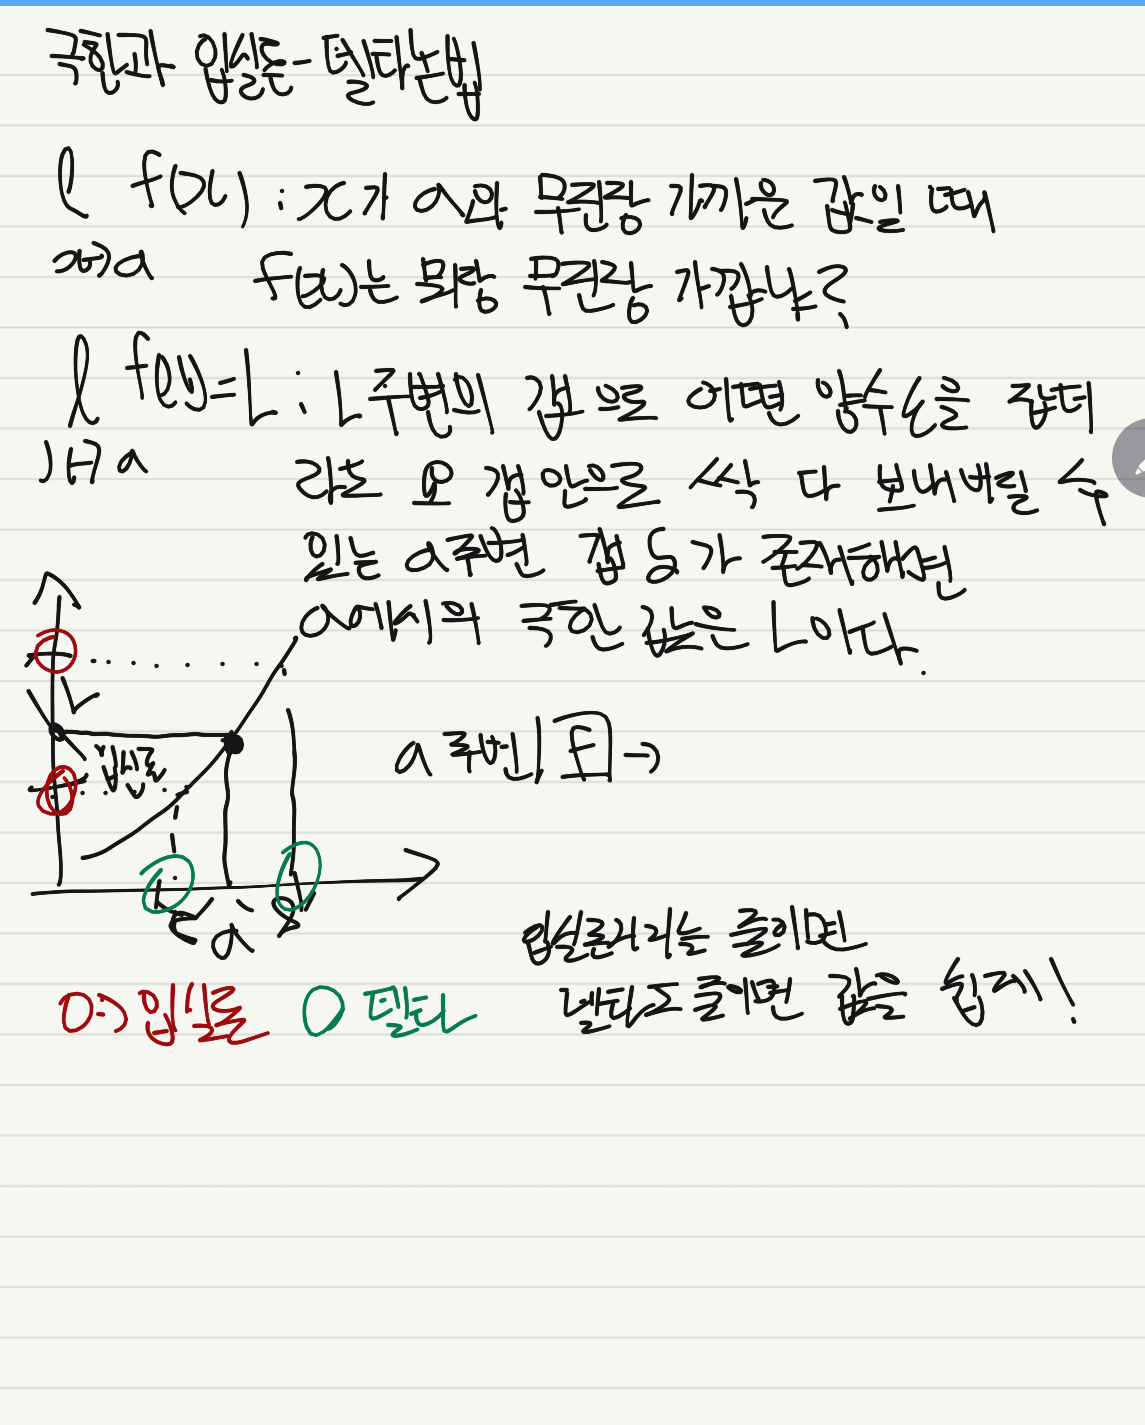 극한과 입실론-델타논법
l f(x) : x가 a와 무진장 가까운 값일 때
x→a f(x)는 뭐랑 무진장 가깝냐?
l f(x)=L : L주변의 갭으로 어떤 양수 ε을 잡더
x→a 라도 요 갭 안으로 싹 다 보내버릴 수
있는 a주변 갭 δ가 존재하면
a에서의 극한값은 L이다.
L
입실론
a 주변 f →
δ a δ
입실론거리는 줄이면
델타도 줄이면 같은
O → 입실론 O 델타